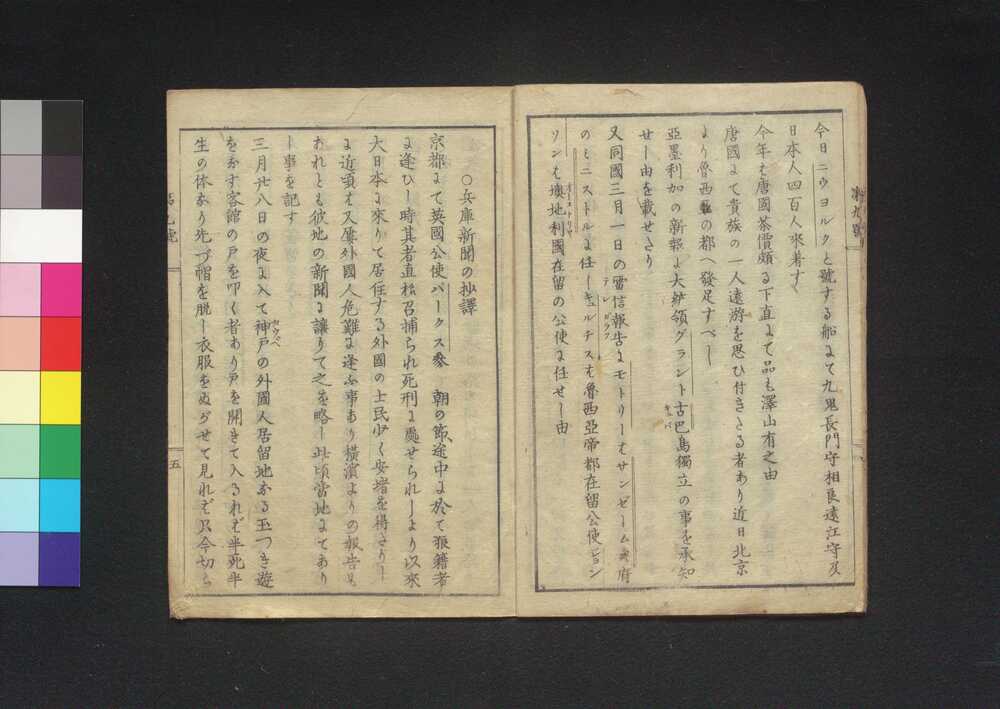 今日ニウヨルクと號する船にて九鬼長門守相良遠江守及
日本人四百人來着す
今年も唐國茶價頗る下直にて品も澤山有之由
唐國にて貴族の一人遠游を思ひ付きたる者あり近日北京
より魯西亜の都へ發足すべし
亞墨利加の新報に大統領グラント古巴島獨立の事を承知
せし由を載せたり
又同國三月一日の電信報告にモトリーもサンゼームス府
のミニストルに任しキュルチスも魯西亞帝都在留公使ジョン
ソンも墺地利國在留の公使に任せし由
○兵庫新聞の抄譯
京都にて英國公使パークス參 朝の節途中に於て狼藉者
に逢ひし時其者直樣召捕られ死刑に處せられしより以來
大日本に來りて居住する外國の士民少く安堵を得たりし
に近頃も又屢外國人危難に逢ふ事あり横濱よりの報告も
あれとも彼地の新聞に讓りて之を略し此頃當地にてあり
し事を記す
三月廿八日の夜に入て神戸の外國人居留地なる玉つき遊
をなす客館の戸を叩く者あり戸を開きて入るれば半死半
生の体なり先づ帽を脱し衣服をぬがせて見れば只今切ら
五